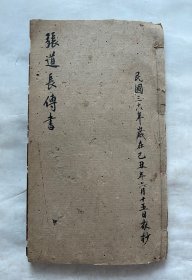 民國三八年歲在己丑年八月十五日敬抄
張道長傳書